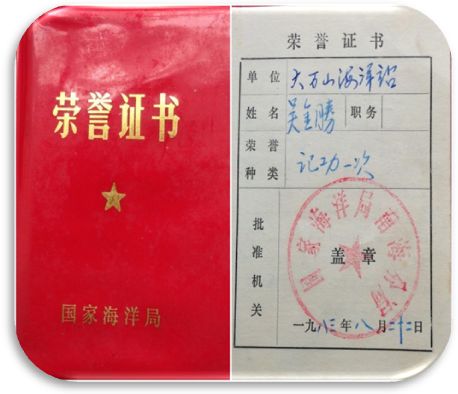 荣誉证书
国家海洋局
荣誉证书
单位 大万山海洋站
姓名 吴金勝 职务
荣誉种类 记功一次
批准机关 盖章
国家海洋局南海分局
一九八三年八月二十二日